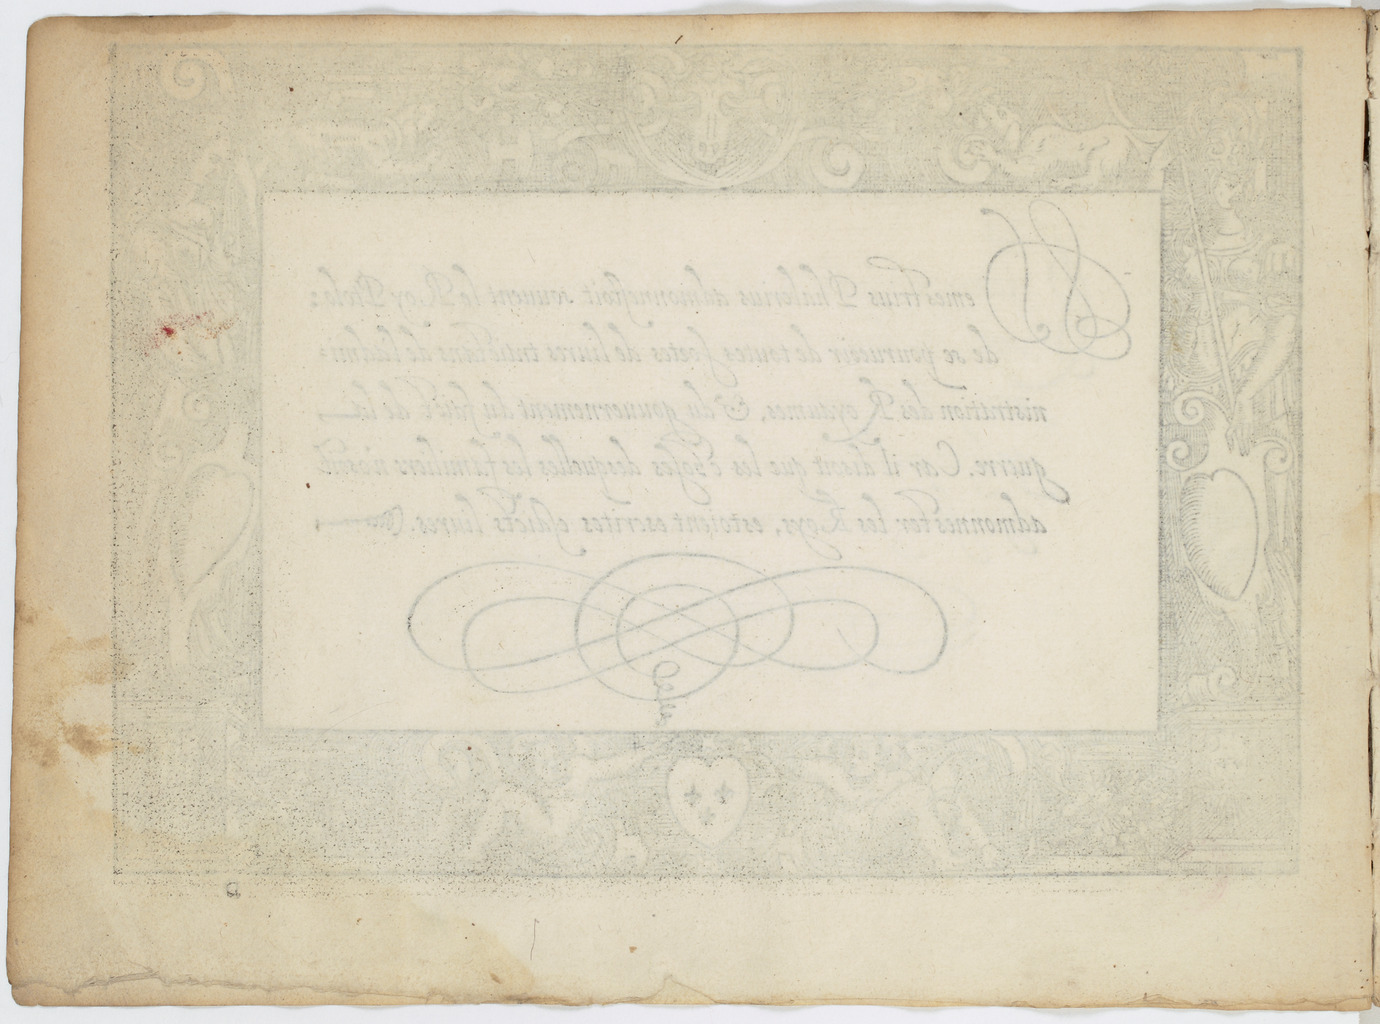 Demestrius Phalerius admonnestoit souuent le Roy Ptole=
de se pourueoir de toutes sortes de liures traictans de l'admi=
nistration des Royaumes, & du gouuernement du faict de la
guerre. Car il disoit que les choses desquelles les familiers n'osent
admonnester les Roys, estoient escrites esdicts liures.
D